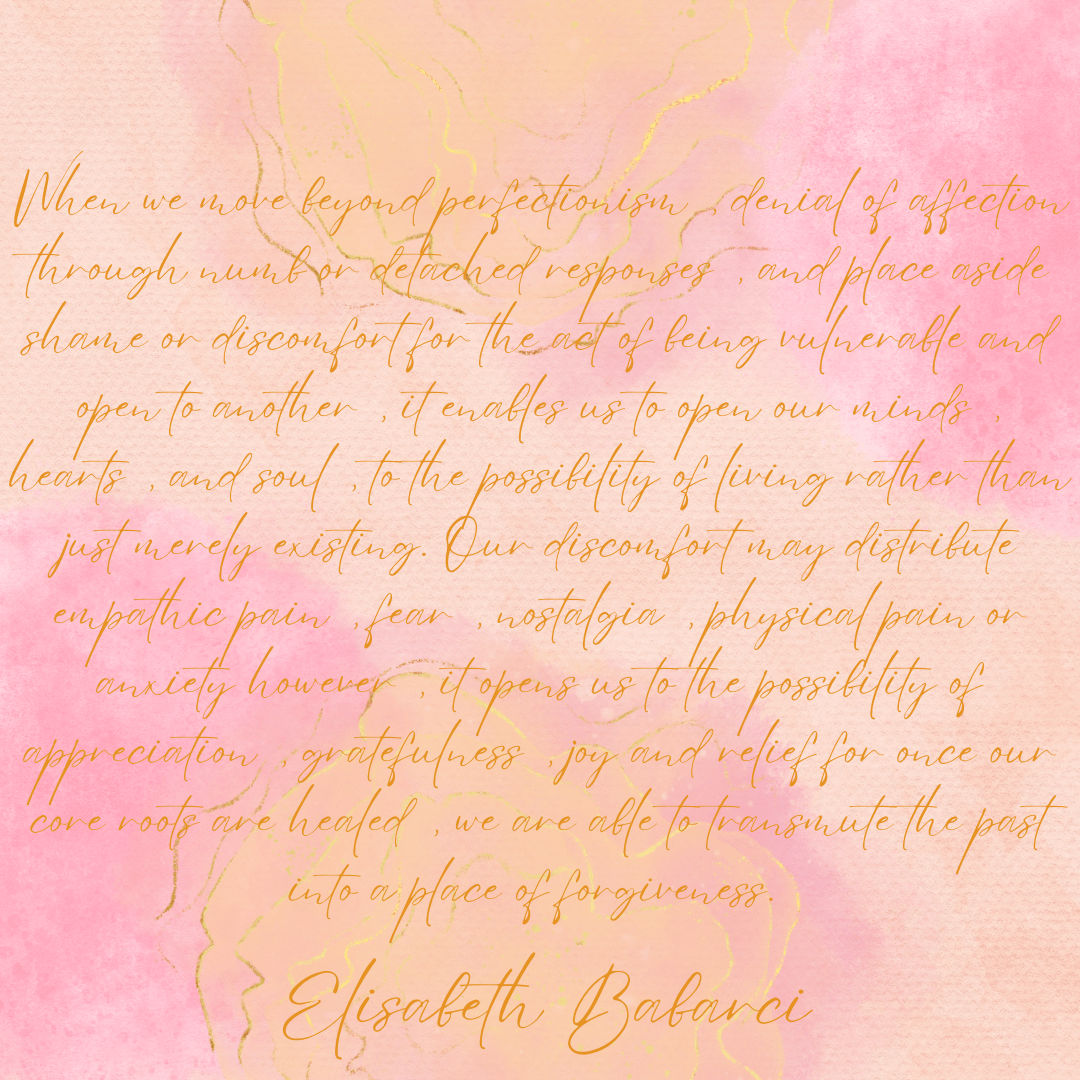 When we move beyond perfectionism , denial of affection
through numb or detached responses , and place aside
shame or discomfort for the act of being vulnerable and
open to another , it enables us to open our minds ,
hearts , and soul , to the possibility of living rather than
just merely existing. Our discomfort may distribute
empathic pain , fear , nostalgia , physical pain or
anxiety however , it opens us to the possibility of
appreciation , gratefulness , joy and relief for once our
core roots are healed , we are able to transmute the past
into a place of forgiveness.
Elisabeth Babarci